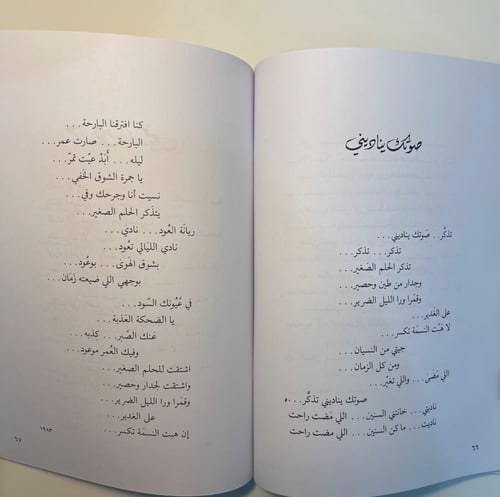 صوتك يناديني
تذكَّر.. صَوتك يناديني...
تذكر... تذكر...
تذكر الحلم الصَغير...
وجدار من طين وحصير...
وقمرا ورا الليل الضرير...
على الغدير...
لا هَبّت النسمَة تكسر...
جيتي من النسيان...
ومن كل الزمان...
اللي مَضى... واللي تغيّر...
صوتك يناديني تذكَّر...
ناديتي... خانتني السنين... اللي مَضت راحت
ناديت... ماكن السنين... اللي مضت راحت
٦٦
كنا افترقنا البارحة...
البارحة... صارت عمر...
ليله... أبَدْ عيّت تمرّ...
يا جمرة الشوق الخَفي...
نسيت أنا وجرحك وفي...
يتذكر الحلم الصغير...
ريانَة العُود... نادي...
نادي الليَالي تعُود...
بشوق الهوى... بوعُود...
بوجهي اللي ضيعته زَمان...
في عُيونك السّود...
يا الضحكة العَذبة...
عَنك الصّبر... كذبه...
وفيك العُمر موعود...
اشتقت للحلم الصغير...
واشتقت لجدار وحصير...
وقمرا ورا الليل الضرير...
على الغدير...
إن هبت النسمَة تكسر...
١٩٨٣
٦٧